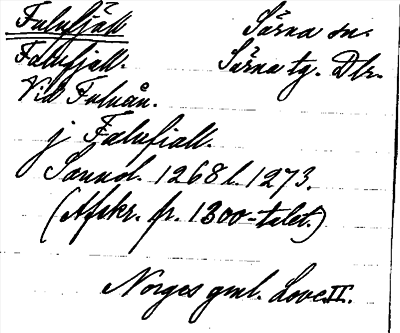 Fulufjäll Särna sn.
Falufjall. Särna tg. Dlr.
Vid Fuluån.
j Falufiall.
Sannol. 1268 l. 1273.
(Afskr. fr. 1300-talet.)
Norges gml. Love II.